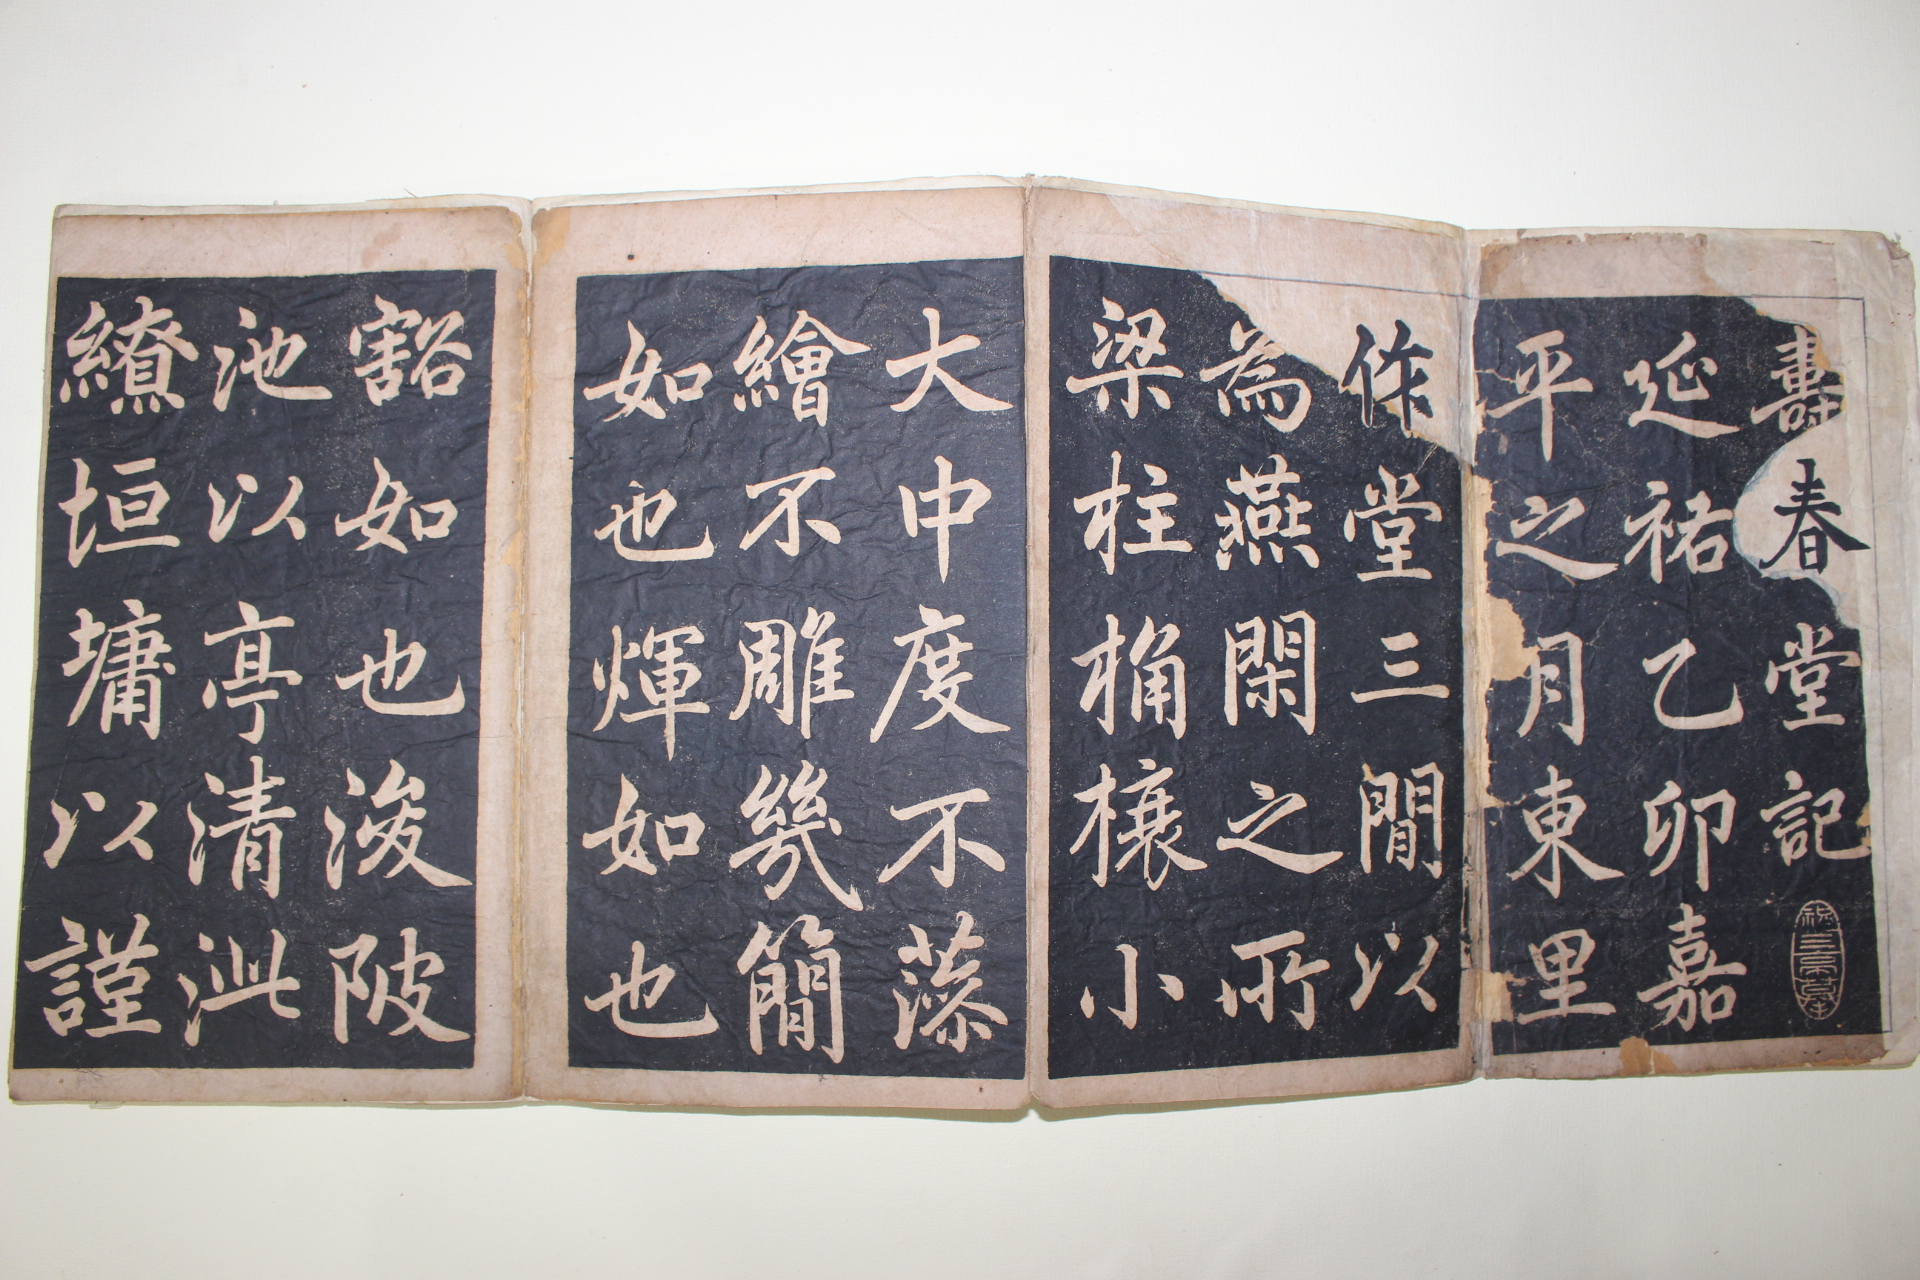 壽春堂記
延祐乙卯嘉
平之月東里
作堂三閒以
為燕閑之所
梁柱桷欀小
大中度不藻
繪不雕幾簡
如也煇如也
豁如也浚陂
池以亭清泚
繚垣墉以謹